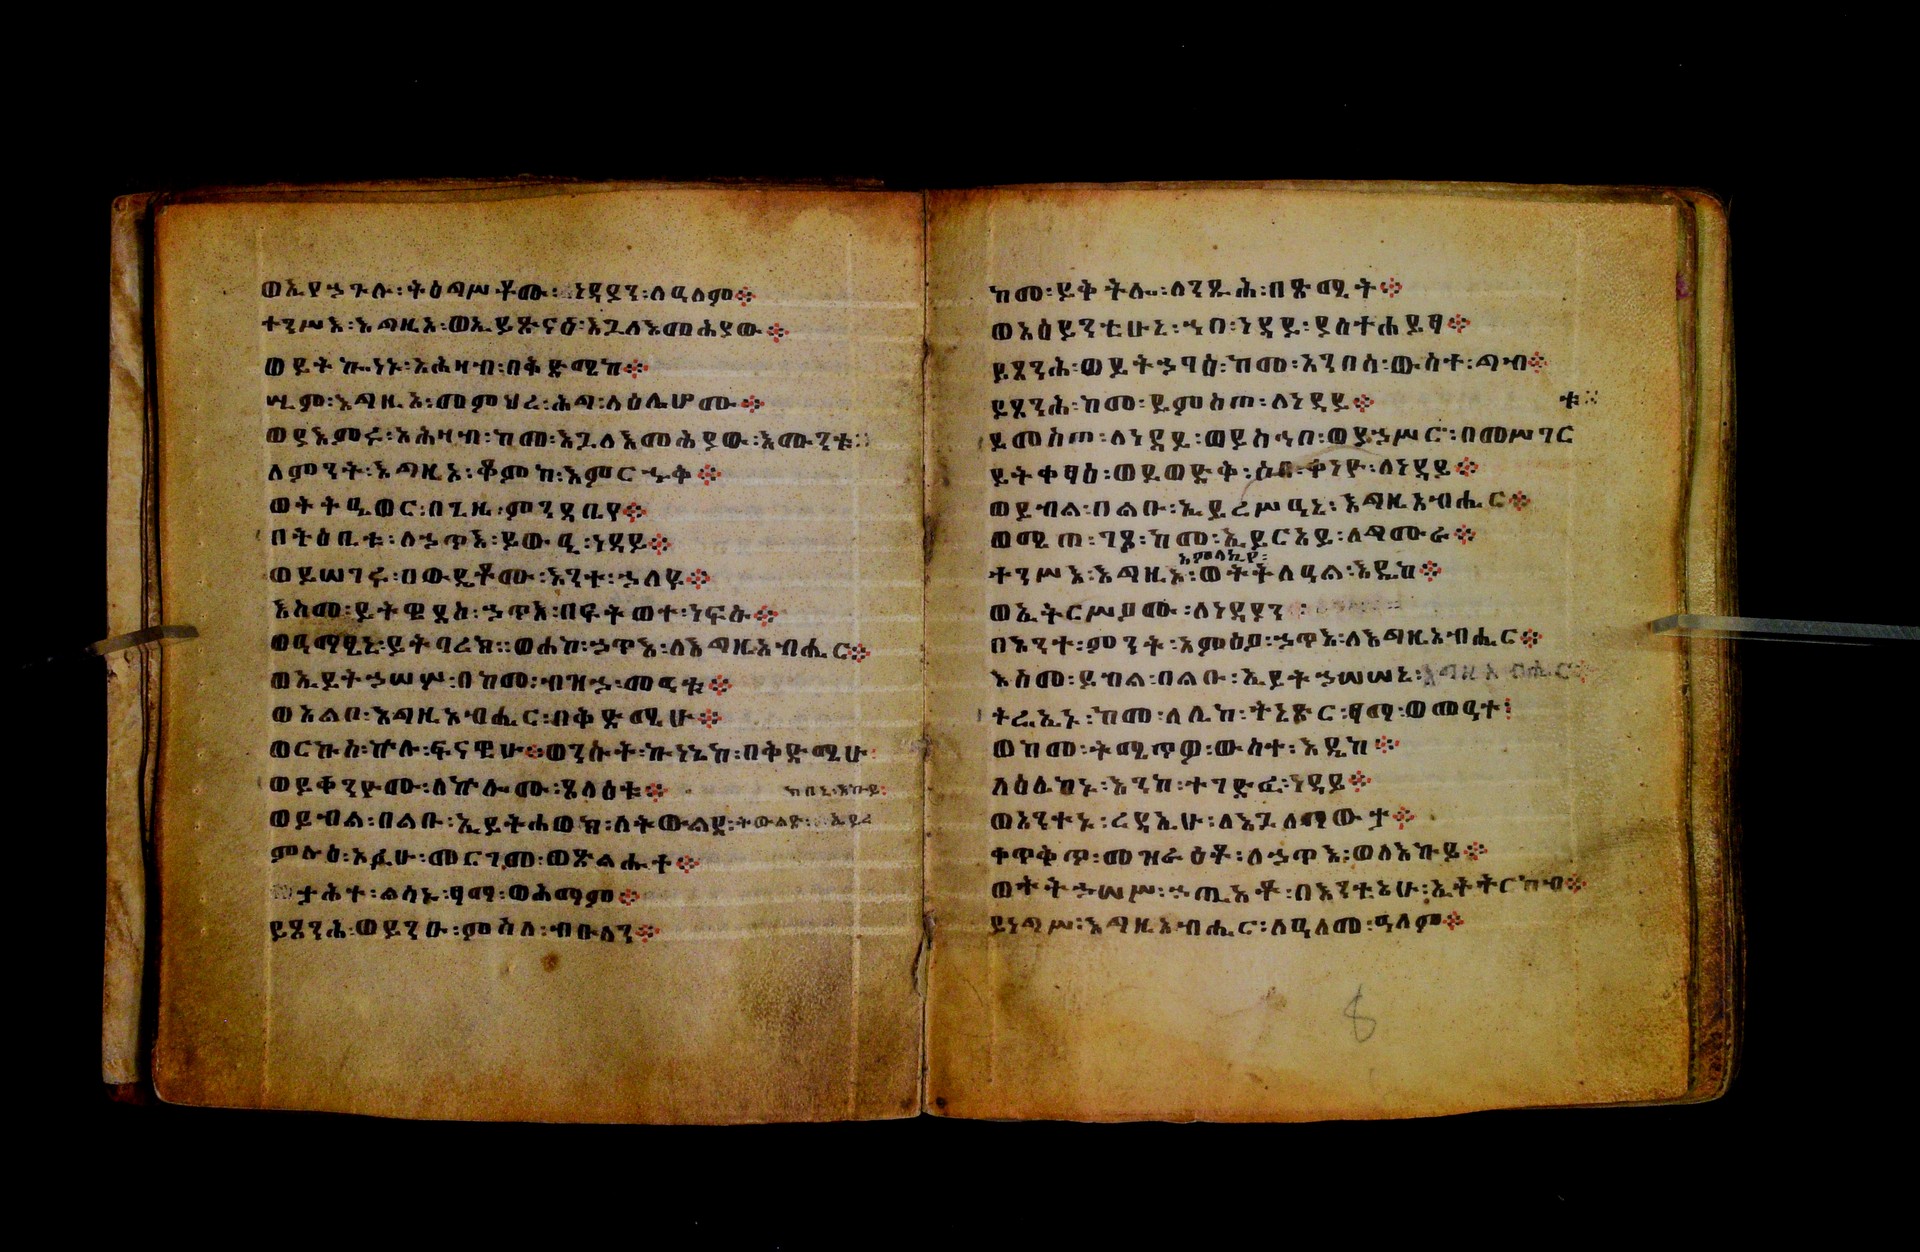 ወኢየኃጕሉ፡ትዕግሥቶሙ፡ለነዳያን፡ለዓለም፨
ተንሥእ፡እግዚኦ፡ወኢይጽናዕ፡እጓለእመሕያው፨
ወይትኰነኑ፡አሕዛብ፡በቅድሜከ፨
ሢም፡እግዚኦ፡መምህረ፡ሕግ፡ለዕሌሆሙ፨
ወያእምሩ፡አሕዛብ፡ከመ፡እጓለእመሕያው፡እሙንቱ፨
ለምንት፡እግዚኦ፡ቆምከ፡እምርኁቅ፨
ወትትዔወር፡በጊዜ፡ምንዳቤየ፨
በትዕቢቱ፡ለኃጥእ፡ይውዒ፡ነዳይ፨
ወይሠገሩ፡በውዴቶሙ፡እንተ፡ኃለዩ፨
እስመ፡ይትዌደስ፡ኃጥእ፡በፍትወተ፡ነፍሱ፨
ወዓማፂኒ፡ይትባረክ፡፡ወሐከ፡ኃጥእ፡ለእግዚአብሔር፨
ወኢይትኃሠሦ፡በከመ፡ብዝኃ፡መዓቱ፨
ወአልቦ፡እግዚአብሔር፡በቅድሜሁ፨
ወርኩስ፡ኵሉ፡ፍናዊሁ፨ወንሱት፡ኵነኔከ፡በቅድሜሁ፡
ወይቀንዮሙ፡ለኵሎሙ፡ጸላዕቱ፨
ወይብል፡በልቡ፡ኢይትሐወክ፡ለትውልደ፡ትውልድ፡
ምሉዕ፡አፉሁ፡መርገመ፡ወጽልሑተ፨
ታሕተ፡ልሳኑ፡ፃማ፡ወሕማም፨
ይፄንሕ፡ወይንዑ፡ምስለ፡ብዑላን፨
ከመ፡ይቅትሎ፡ለንጹሕ፡በጽሚት፨
ወአዕይንቲሁኒ፡ኀበ፡ነዳይ፡ያስተሐይፃ፨
ይፄንሕ፡ወይትኃባዕ፡ከመ፡አንበሳ፡ውስተ፡ግብ፨
ይፄንሕ፡ከመ፡ይምስጦ፡ለነዳይ፨
ቱ፨
ይመስጦ፡ለነዳይ፡ወይስሕቦ፡ወያኃሥር፡በመሥገር
ይትቀፃዕ፡ወይወድቅ፡ሶበ፡ቀነዮ፡ለነዳይ፨
ወይብል፡በልቡ፡ኢይረሥዓኒ፡እግዚአብሔር፨
ወሜጠ፡ገጾ፡ከመ፡ኢይርአይ፡ለግሙራ፨
አምላኪየ፡
ተንሥእ፡እግዚኦ፡ወትትለዓል፡እዴከ፨
ወኢትርሥዖሙ፡ለነዳያን፡
በእንተ፡ምንት፡አምዕዖ፡ኃጥእ፡ለእግዚአብሔር፨
እስመ፡ይብል፡በልቡ፡ኢይትኃሠሠኒ፡እግዚአብሔር፨
ትሬኢኑ፡ከመ፡ለሊከ፡ትኔጽር፡ፃማ፡ወመዓተ፡
ወከመ፡ትሜጥዎ፡ውስተ፡እዴከ፨
ለዕሌከኑ፡እንከ፡ተገድፈ፡ነዳይ፨
ወአንተኑ፡ረዳኢሁ፡ለእጓለማውታ፨
ቀጥቅጥ፡መዝራዕቶ፡ለኃጥእ፡ወለእኩይ፨
ወትትኃሠሥ፡ኃጢአቶ፡በእንቲአሁ፡ኢትትርከብ፨
ይነግሥ፡እግዚአብሔር፡ለዓለመ፡ዓለም፨
8